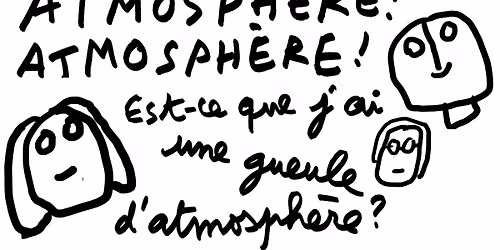 ATMOSPHÈRE!
ATMOSPHÈRE!
Est-ce que j'ai
une gueule
d'atmosphère?